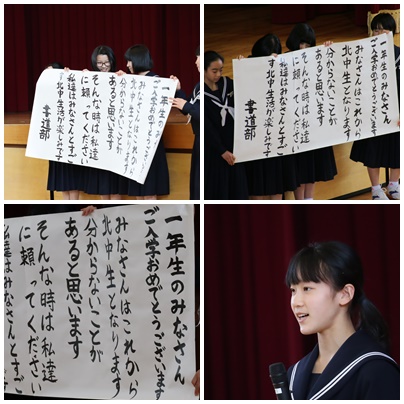 一年生のみなさん
ご入学おめでとうございます
みなさんはこれから
北中生となります
分からないことが
あると思います
そんな時は私達
に頼ってください
私達はみなさんとすご
す北中生活が楽しみです
書道部
一年生のみなさん
ご入学おめでとうございます
みなさんはこれから
北中生となります
分からないことが
あると思います
そんな時は私達
に頼ってください
私達はみなさんとすご
す北中生活が楽しみです
書道部
一年生のみなさん
ご入学おめでとうございます
みなさんはこれから
北中生となります
分からないことが
あると思います
そんな時は私達
に頼ってください
私達はみなさんとすご